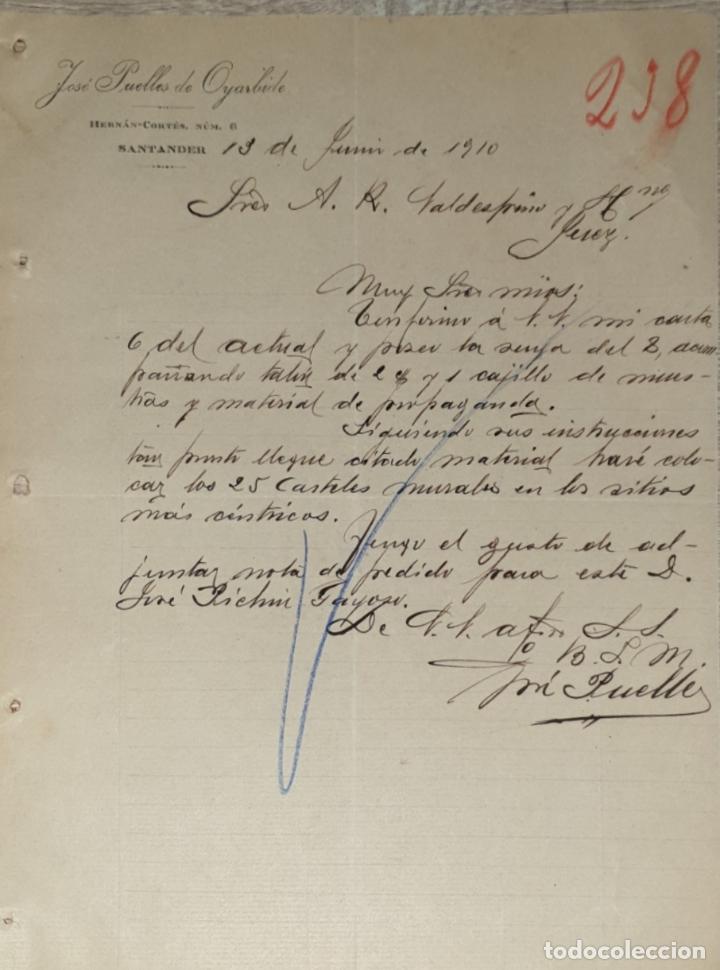 José Puelles de Oyarbide
238
HERNÁN-CORTÉS, NÚM. 6
SANTANDER 13 de Junio de 1910
Sres A. R. Valdespino y Hno
Jerez.
Muy Sres mios:
Confirmo á V.V. mi carta
6 del actual y poseo la suya del 8, acom
pañando talón de 2 y 1 cajillo de mues
tras y material de propaganda.
Siguiendo sus instrucciones
tan pronto llegue citado material haré colo
car los 25 Carteles murales en los sitios
más céntricos.
Tengo el gusto de ad-
juntar nota de pedido para este D.
José Gayoso.
De V.V. afmo S.S.
Q B. S. M.
José Puelles
todocoleccion.net